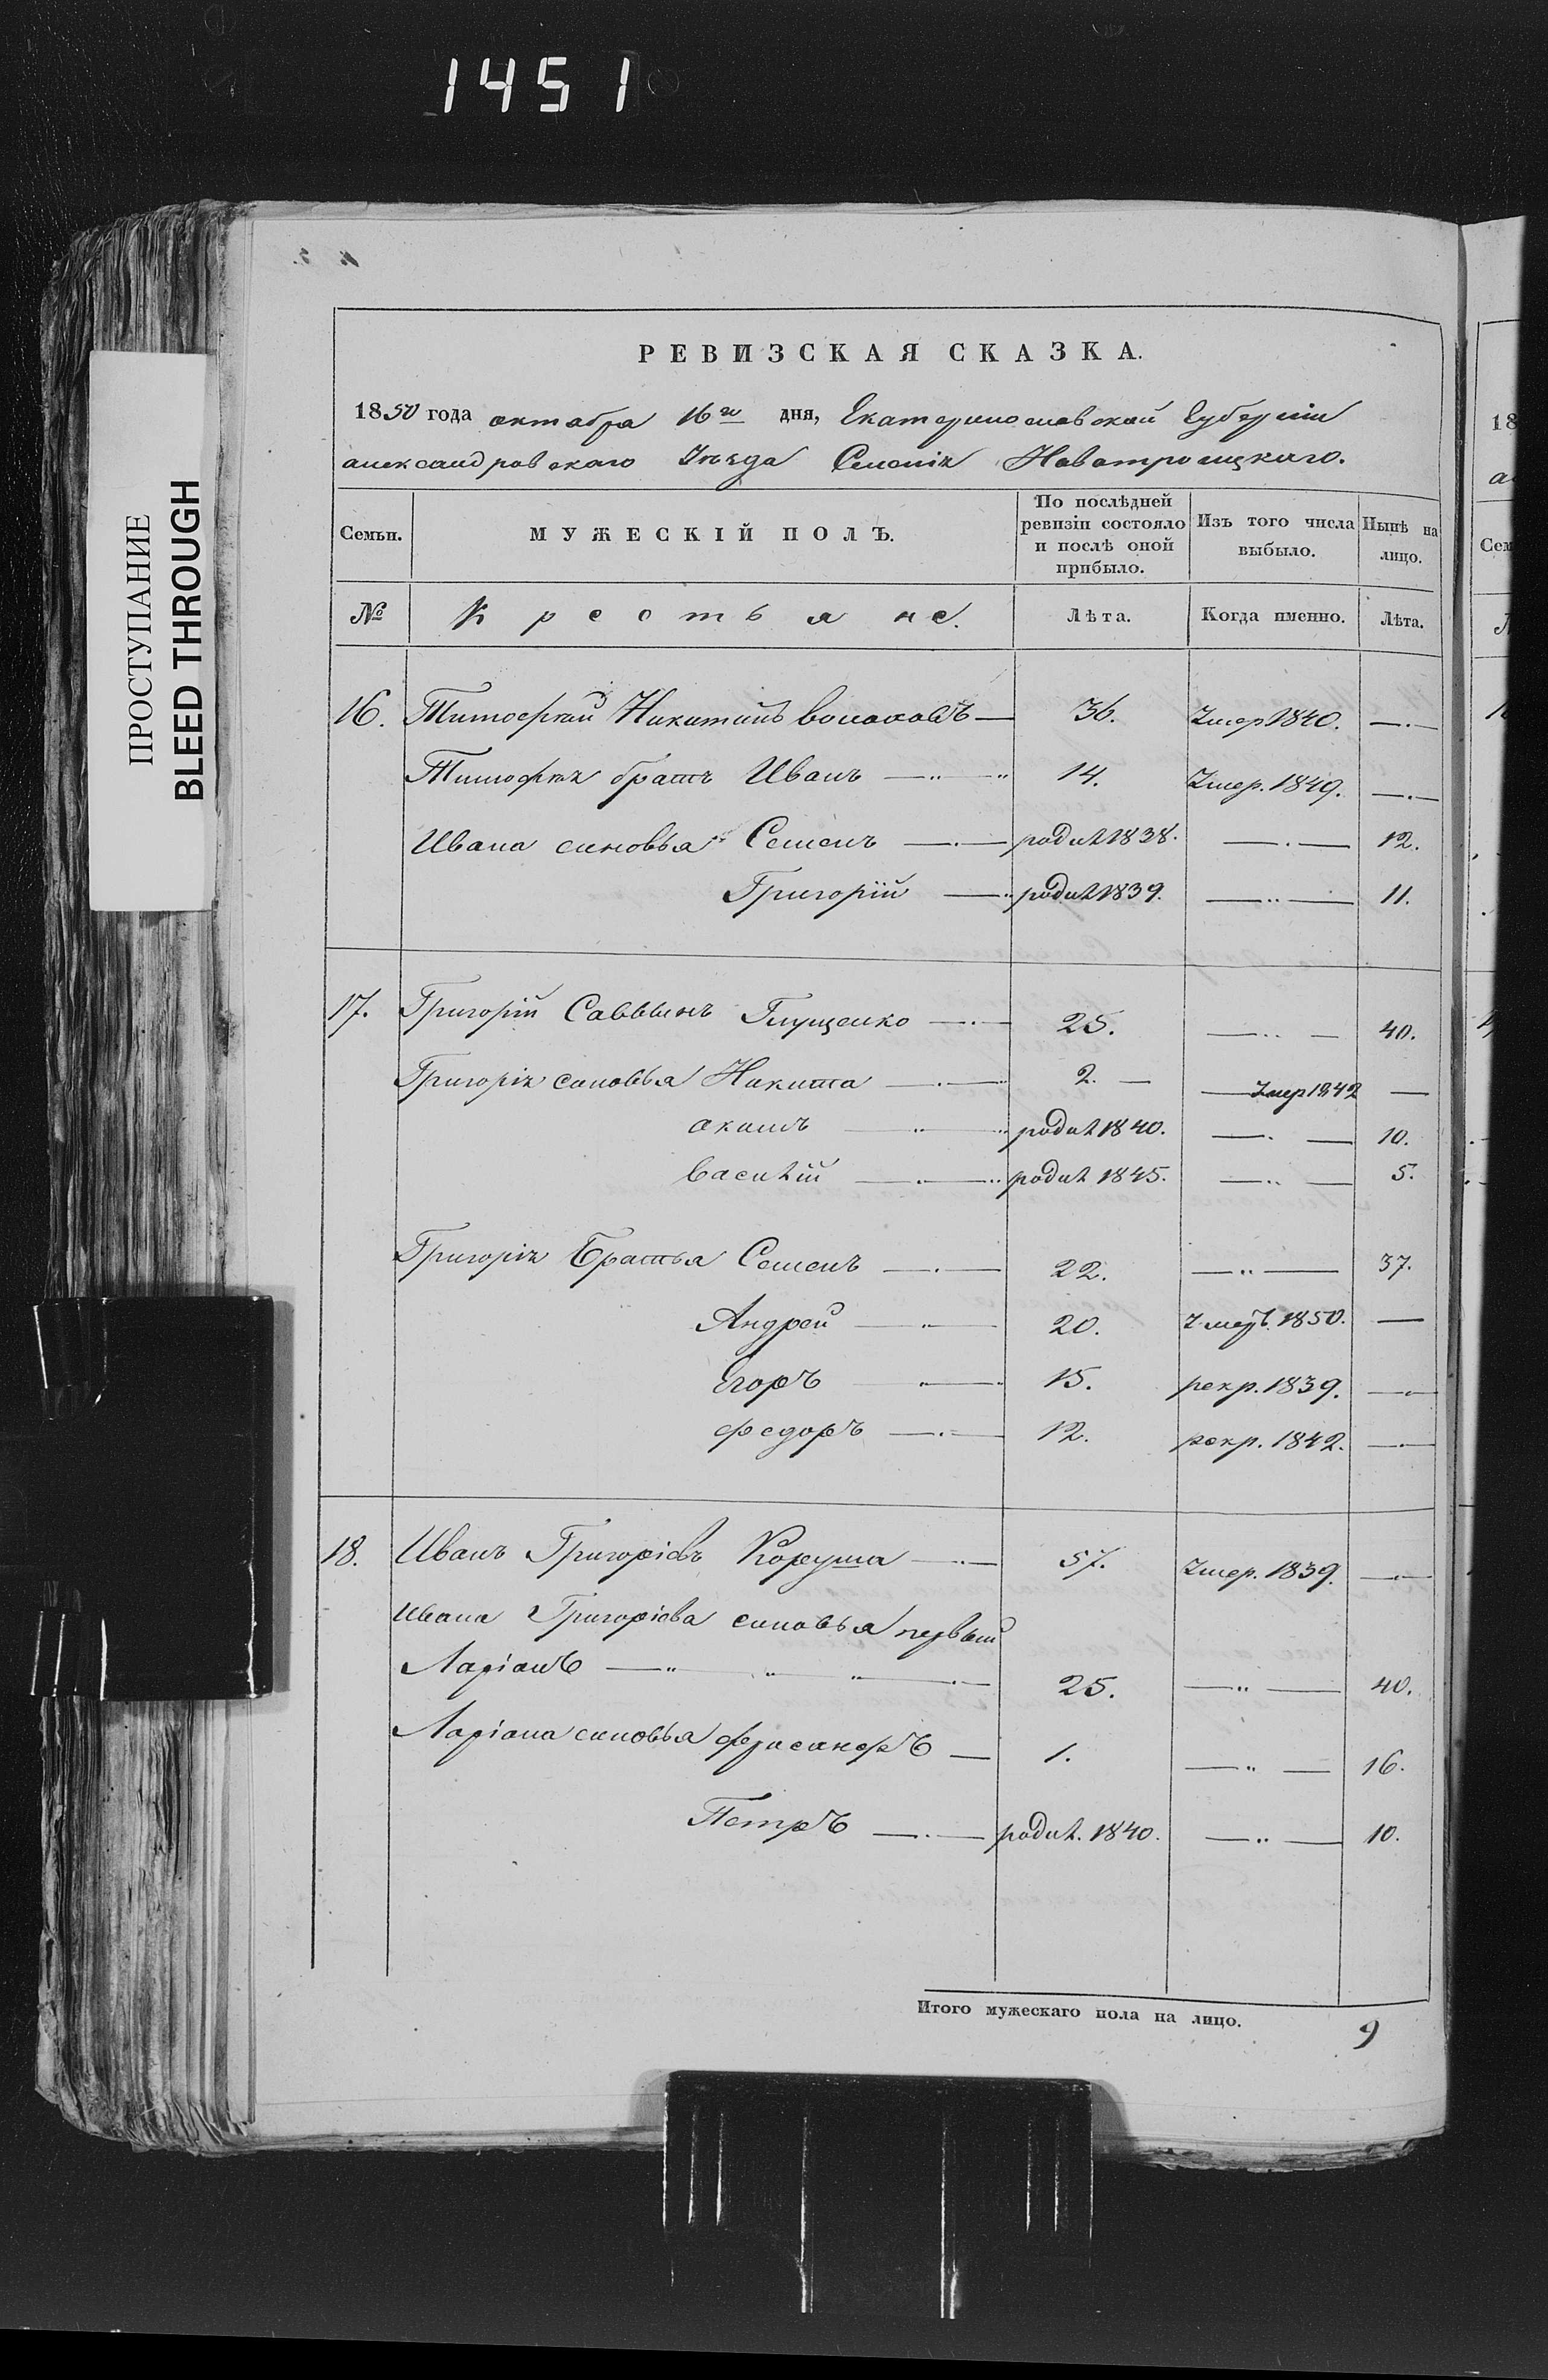 1451
ПРОСТУПАНИЕ
BLEED THROUGH
РЕВИЗСКАЯ СКАЗКА.
1850 года октабра 16го дня, Екатеринославской Губернии
александровскаго Уъзда Селенія Новотроицкаго.
Семьи. МУЖЕСКІЙ ПОЛЪ. По послѣдней ревизіи состояло и послѣ оной прибыло. Изъ того числа выбыло. Нынѣ на лицо.
№ Крестьяне. Лѣта. Когда именно. Лѣта.
16. Тимофей Никитинъ 36. Умер 1840. —
Тимофея братъ Иванъ — 14. Умер. 1849. —
Ивана синовья Семенъ — родил 1838. — 12.
Григорій — родил 1839. — 11.
17. Григорій Саввинъ Глущенко — 25. — 40.
Григорія синовья Никита — 2. — Умер 1842 —
акимъ — родил 1840. — 10.
Василій — родил 1845. — 5.
Григорія Братья Семенъ — 22. — 37.
Андрей — 20. Умеръ. 1850. —
Егоръ — 15. рекр. 1839. —
Федоръ — 12. рекр. 1842. —
18. Иванъ Григоріевъ — 57. Умер. 1839. —
Ивана Григоріева синовья первый
Ларіанъ — 25. — 40.
Ларіана синовья — 1. — 16.
Петръ — родил. 1840. — 10.
Итого мужескаго пола на лицо. 9